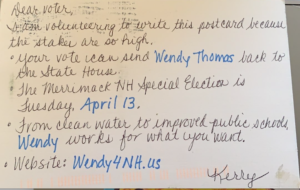 Dear voter,
I am volunteering to write this postcard because
the stakes are so high.
• Your vote can send Wendy Thomas back to
the State House.
• The Merrimack NH Special Election is
Tuesday, April 13.
• From clean water to improved public schools,
Wendy works for what you want.
• Website: Wendy4NH.us
Kerry